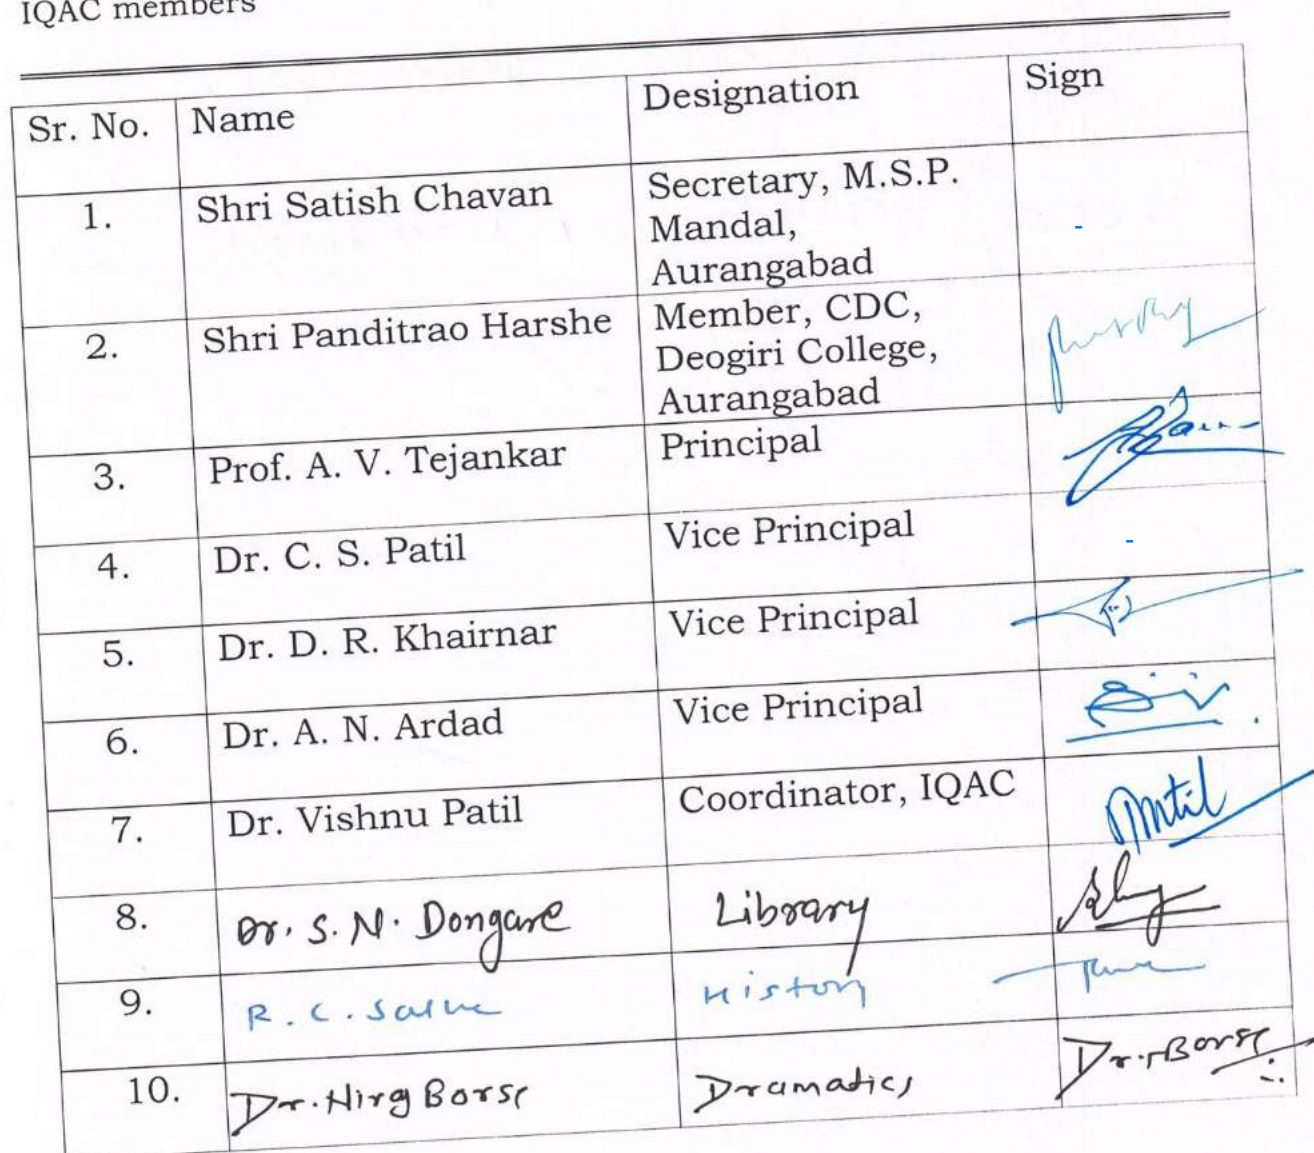 IQAC members
Sr. No. Name Designation Sign
1. Shri Satish Chavan Secretary, M.S.P.
Mandal,
Aurangabad
-
2. Shri Panditrao Harshe Member, CDC,
Deogiri College,
Aurangabad
3. Prof. A. V. Tejankar Principal
4. Dr. C. S. Patil Vice Principal -
5. Dr. D. R. Khairnar Vice Principal
6. Dr. A. N. Ardad Vice Principal
7. Dr. Vishnu Patil Coordinator, IQAC
8. Dr. S. N. Dongare Library
9. R. C. Salve History
10. Dr. Borse Dramatics Dr. Borse